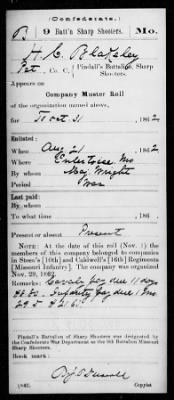 (Confederate.)
B 9 Batt'n Sharp Shooters. Mo.
H. C. Blakeley
Pvt, Co. C, Pindall's Battalion Sharp
Shooters.
Appears on
Company Muster Roll
of the organization named above,
for to Oct 31, 1862
Enlisted:
When Aug 21, 1862
Where Mo
By whom May Wright
Period War
Last paid:
By whom
To what time , 186
Present or absent Present
NOTE: At the date of this roll (Nov. 1) the
members of this company belonged to companies
in Steen's [10th] and Caldwell's [16th] Regiments
[Missouri Infantry]. The company was organized
Nov. 29, 1862.
Remarks: Cavalry pay due 11 days
$8.80. Infantry pay due 1 mo
29 d $21.61
Pindall's Battalion of Sharp Shooters was designated by
the Confederate War Department as the 9th Battalion Missouri
Sharp Shooters.
Book mark:
(642)
Copyist.